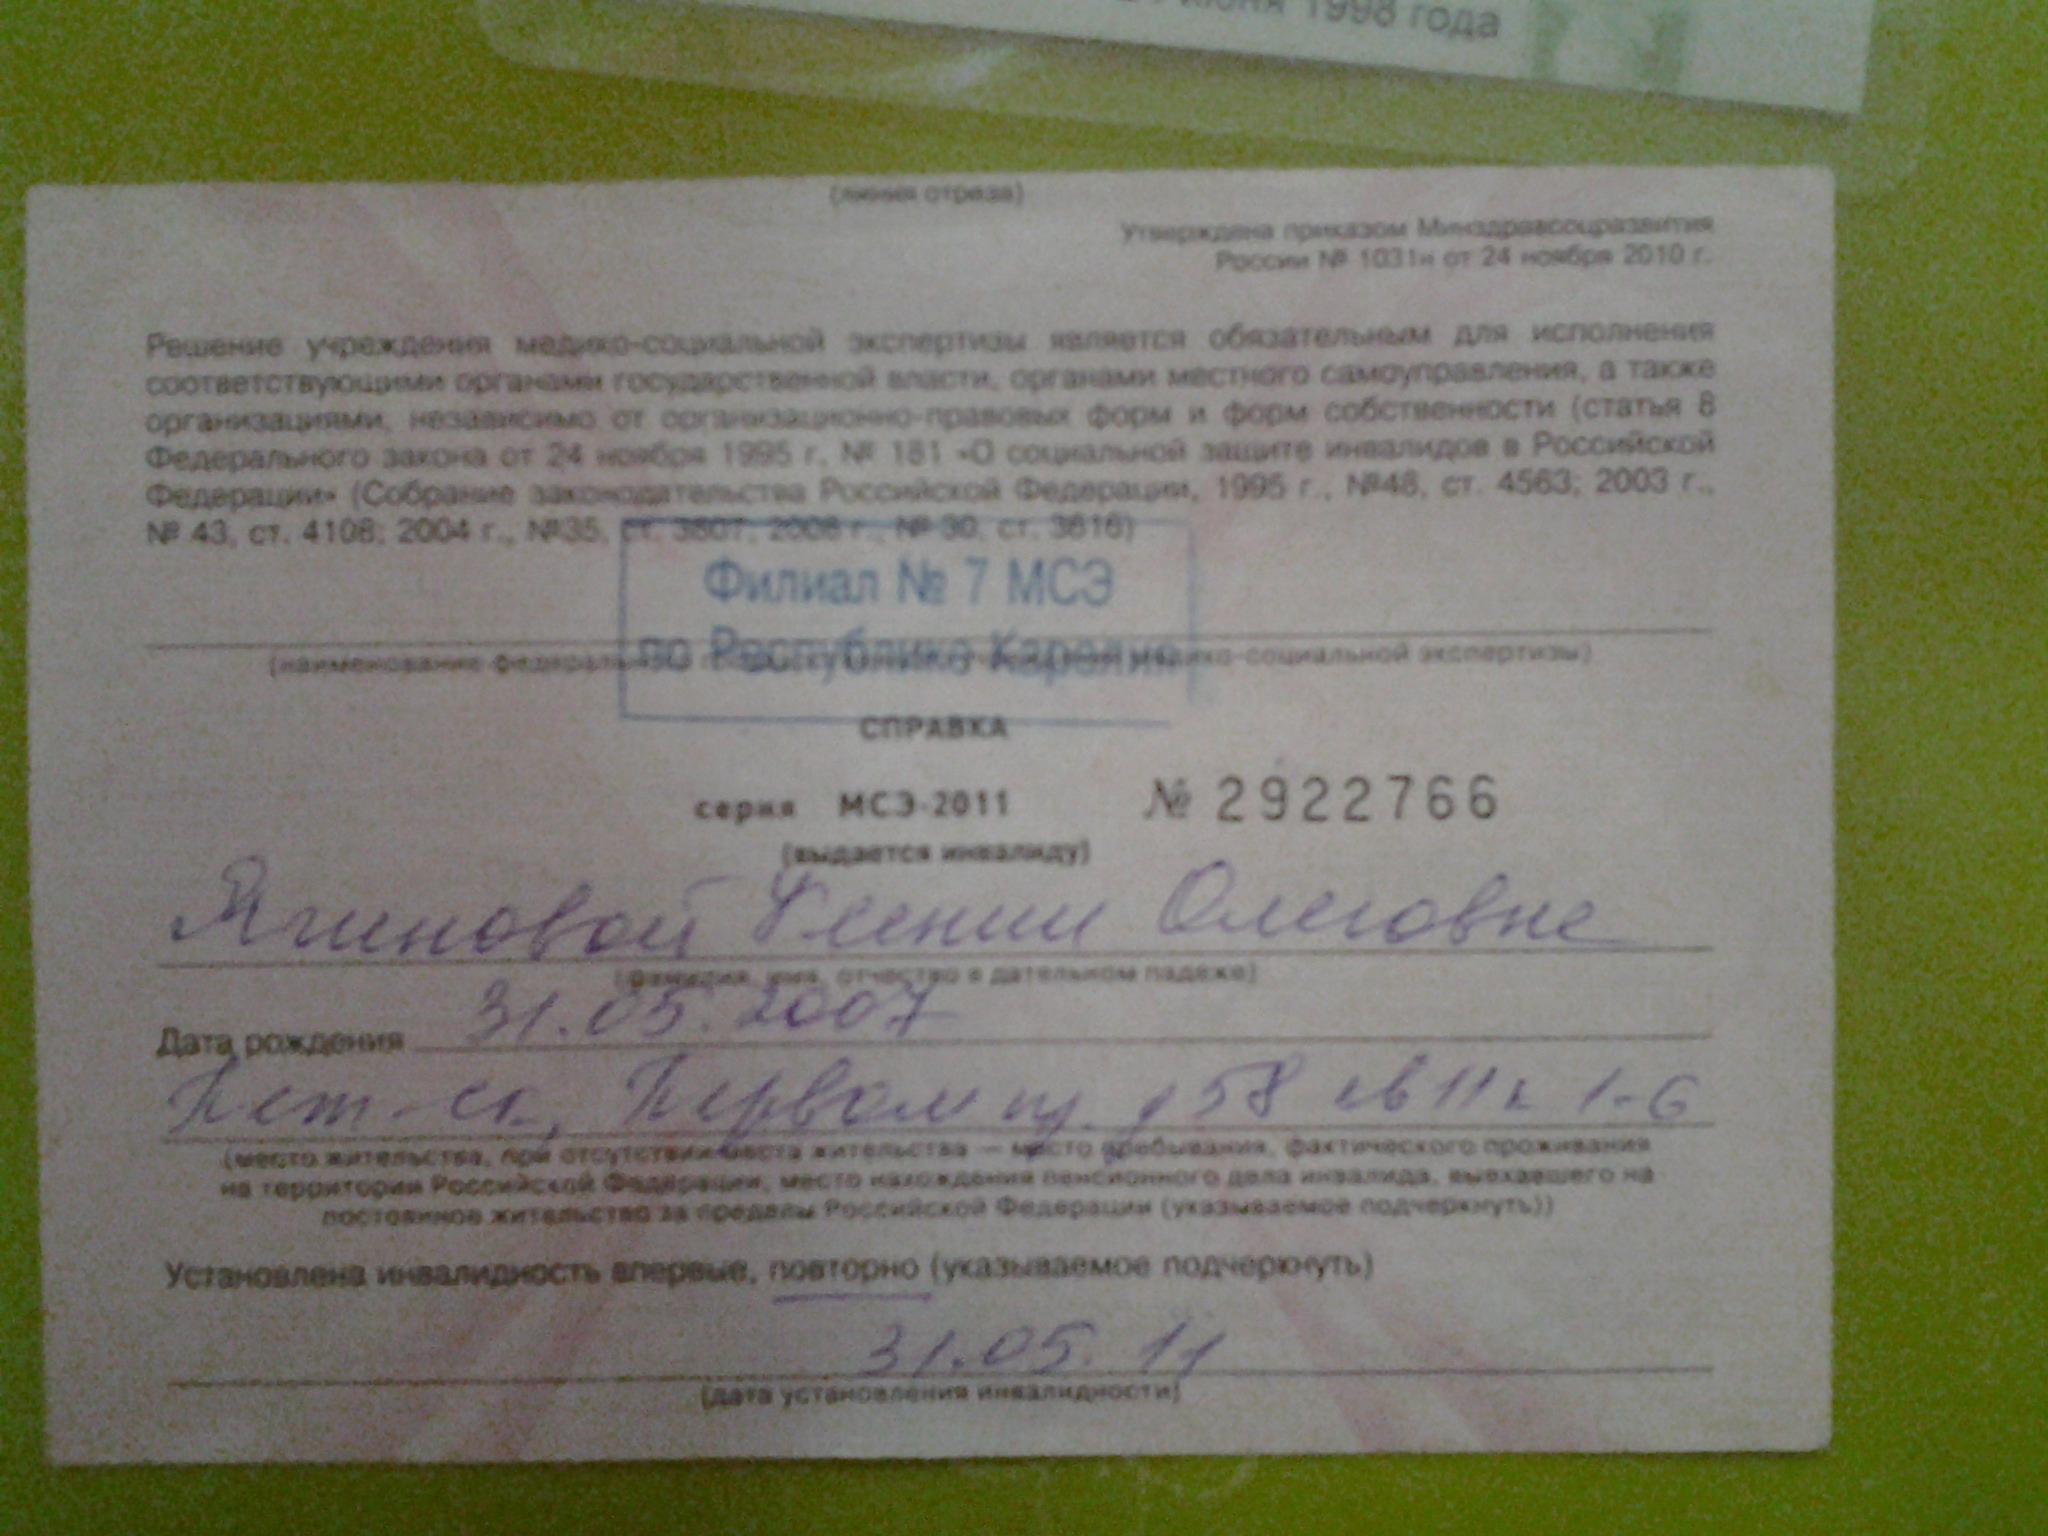 июня 1998 года
(линия отреза)
Утверждена приказом Минздравсоцразвития
России № 1031н от 24 ноября 2010 г.
Решение учреждения медико-социальной экспертизы является обязательным для исполнения
соответствующими органами государственной власти, органами местного самоуправления, а также
организациями, независимо от организационно-правовых форм и форм собственности (статья 8
Федерального закона от 24 ноября 1995 г. № 181 «О социальной защите инвалидов в Российской
Федерации» (Собрание законодательства Российской Федерации, 1995 г., №48, ст. 4563; 2003 г.,
№ 43, ст. 4108; 2004 г., №35, ст. 3607; 2008 г., № 30, ст. 3616)
Филиал № 7 МСЭ
по Республике Карелия
(наименование федерального государственного учреждения медико-социальной экспертизы)
СПРАВКА
серия МСЭ-2011 № 2922766
(выдается инвалиду)
Ксении Олеговне
(фамилия, имя, отчество в дательном падеже)
Дата рождения 31.05.2007
Пет-ск, Первом пр. д 58 кв 11 к 1-6
(место жительства, при отсутствии места жительства — место пребывания, фактического проживания
на территории Российской Федерации, место нахождения пенсионного дела инвалида, выехавшего на
постоянное жительство за пределы Российской Федерации (указываемое подчеркнуть))
Установлена инвалидность впервые, повторно (указываемое подчеркнуть)
31.05.11
(дата установления инвалидности)